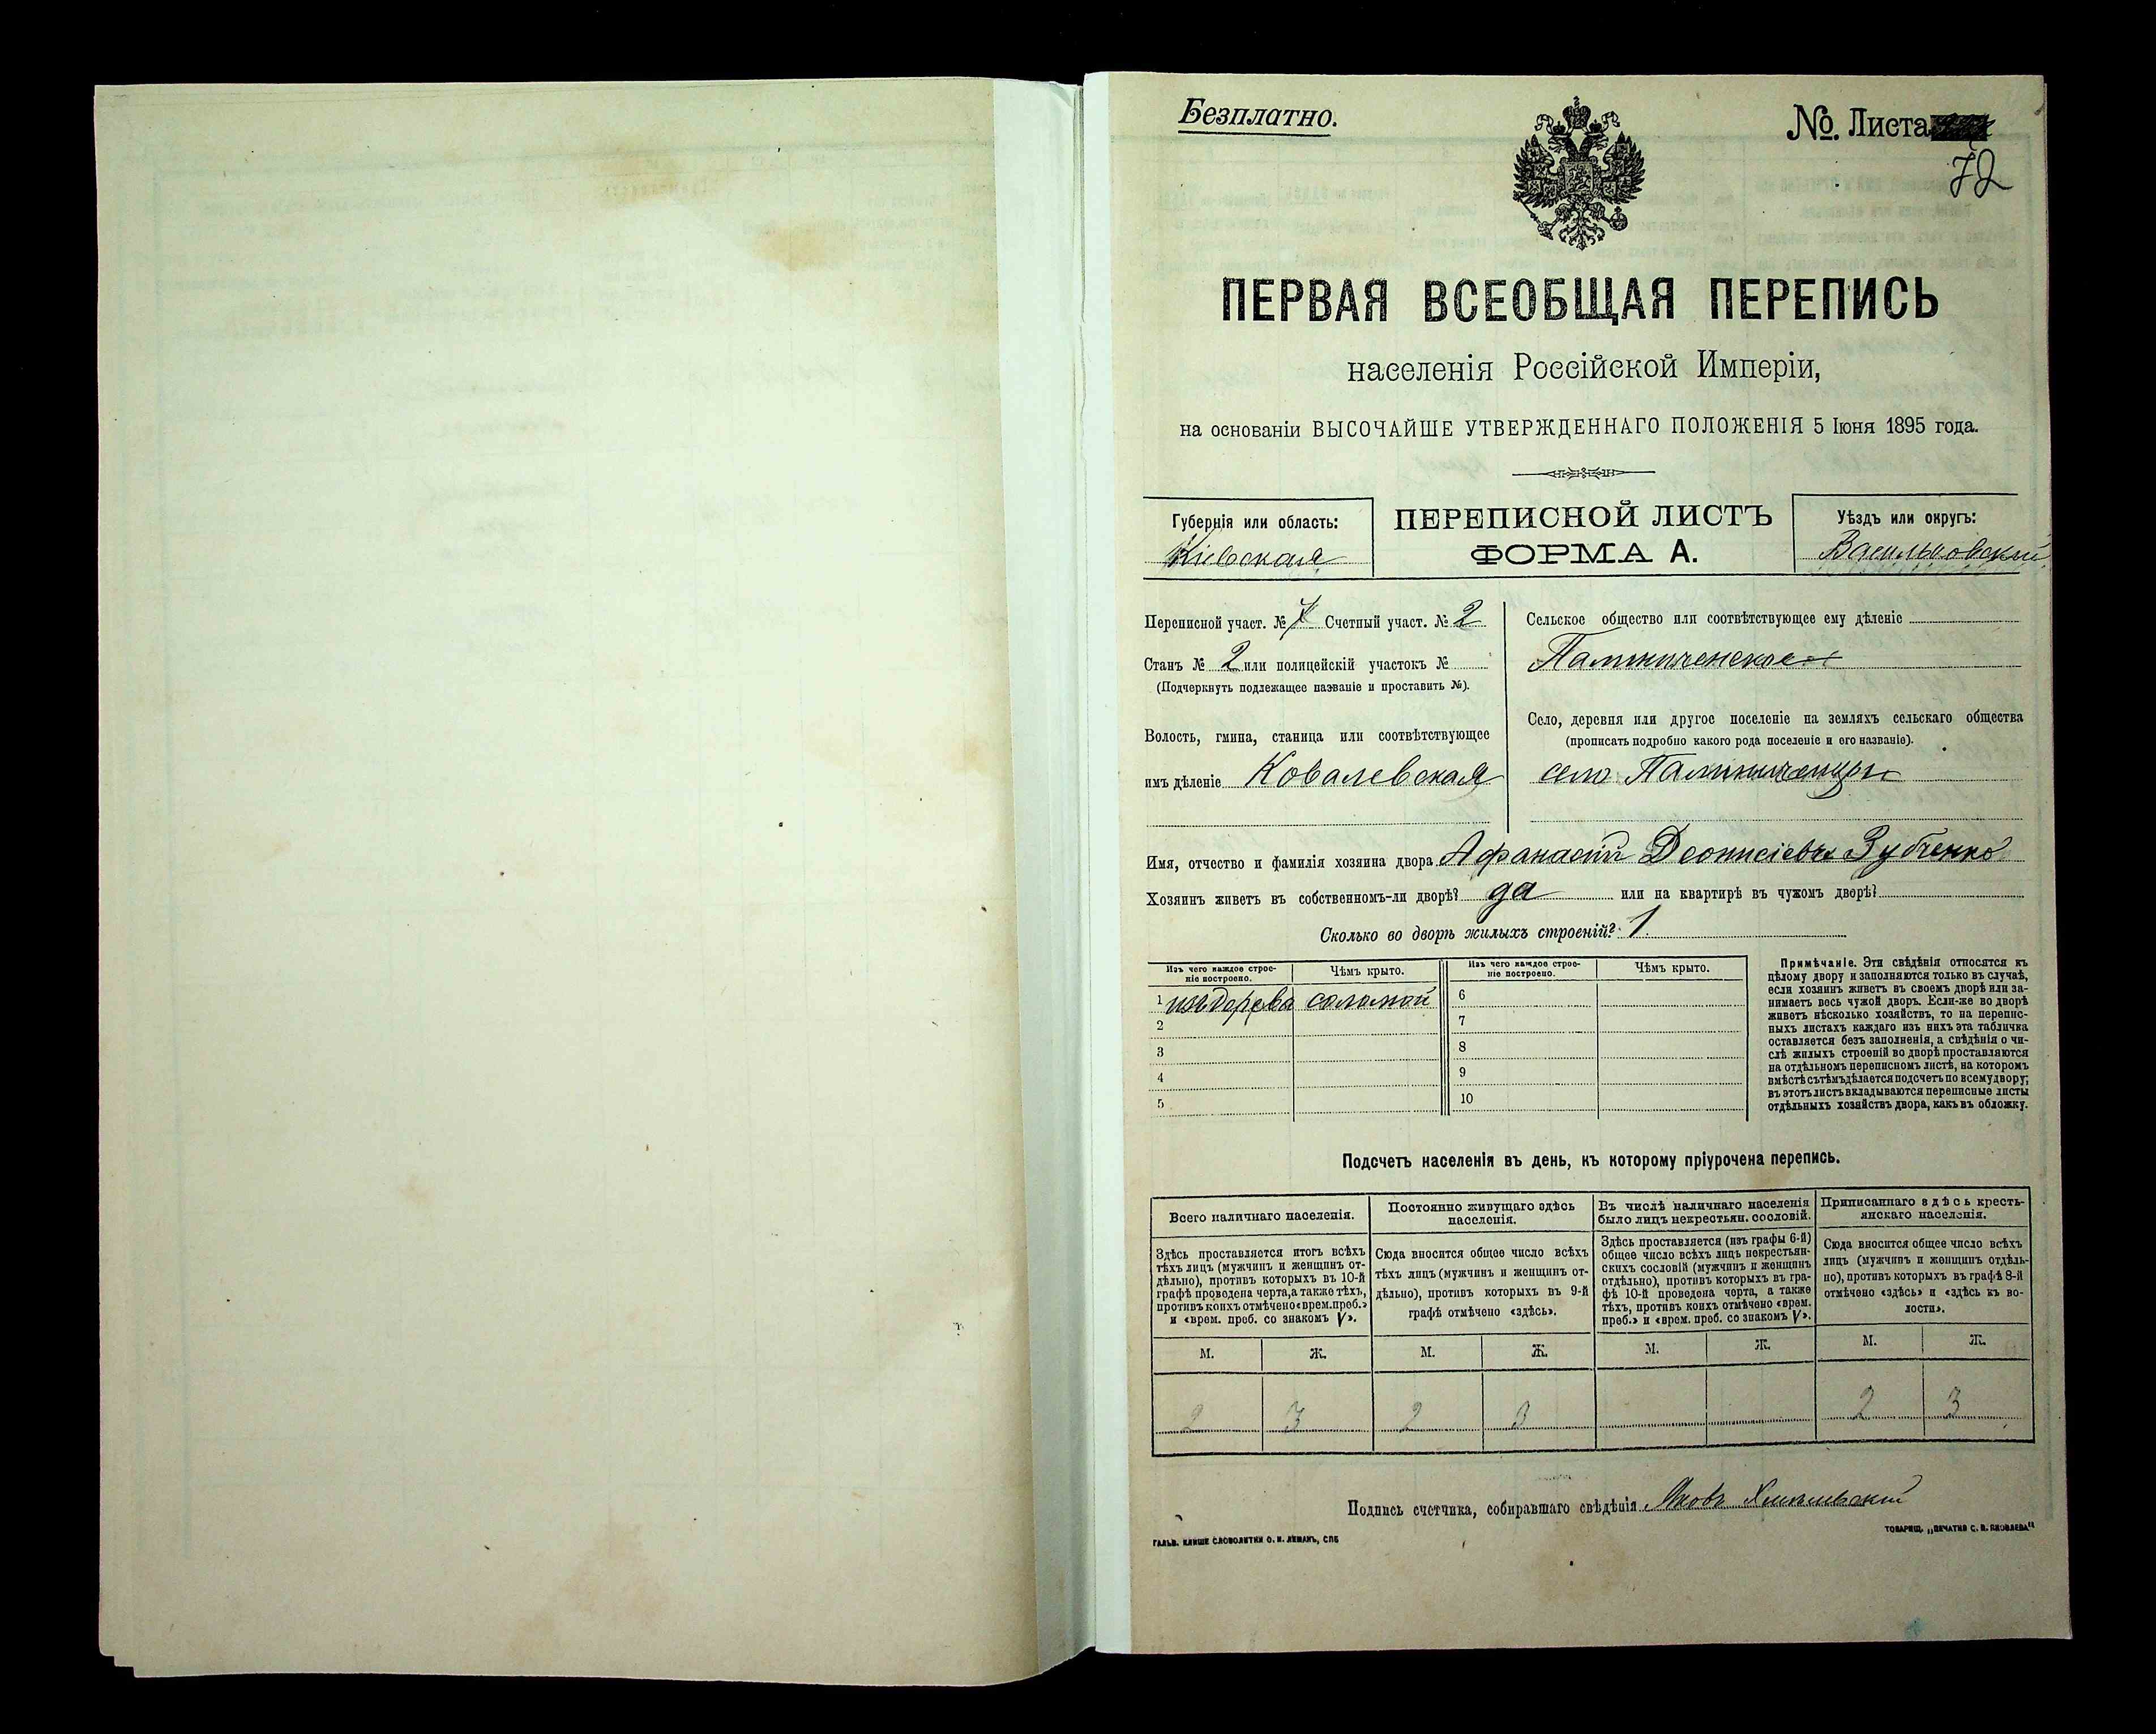 Безплатно.
№. Листа
72
ПЕРВАЯ ВСЕОБЩАЯ ПЕРЕПИСЬ
населенія Россійской Имперіи,
на основаніи ВЫСОЧАЙШЕ УТВЕРЖДЕННАГО ПОЛОЖЕНІЯ 5 Іюня 1895 года.
Губернія или область:
Кіевская
ПЕРЕПИСНОЙ ЛИСТЪ
ФОРМА А.
Уѣздъ или округъ:
Васильковскій
Переписной участ. № Счетный участ. № 2
Станъ № 2 или полицейскій участокъ №
(Подчеркнуть подлежащее названіе и проставить №).
Волость, гмина, станица или соотвѣтствующее
имъ дѣленіе Ковалевская
Сельское общество или соотвѣтствующее ему дѣленіе
Село, деревня или другое поселеніе на земляхъ сельскаго общества
(прописать подробно какого рода поселеніе и его названіе).
село
Имя, отчество и фамилія хозяина двора Афанасій Деонисіевъ Зубченко
Хозяинъ живетъ въ собственномъ-ли дворѣ? да или на квартирѣ въ чужомъ дворѣ?
Сколько во дворѣ жилыхъ строеній? 1
Изъ чего каждое строе-
ніе построено.
Чѣмъ крыто.
Изъ чего каждое строе-
ніе построено.
Чѣмъ крыто.
1 изъ дерева соломой 6
2 7
3 8
4 9
5 10
Примѣчаніе. Эти свѣдѣнія относятся къ
цѣлому двору и заполняются только въ случаѣ,
если хозяинъ живетъ въ своемъ дворѣ или за-
нимаетъ весь чужой дворъ. Если-же во дворѣ
живетъ нѣсколько хозяйствъ, то на перепис-
ныхъ листахъ каждаго изъ нихъ эта табличка
оставляется безъ заполненія, а свѣдѣнія о чи-
слѣ жилыхъ строеній во дворѣ проставляются
на отдѣльномъ переписномъ листѣ, на которомъ
вмѣстѣ съ тѣмъ дѣлается подсчетъ по всему двору;
въ этотъ листъ вкладываются переписные листы
отдѣльныхъ хозяйствъ двора, какъ въ обложку.
Подсчетъ населенія въ день, къ которому пріурочена перепись.
Всего наличнаго населенія.
Постоянно живущаго здѣсь
населенія.
Въ числѣ наличнаго населенія
было лицъ некрестьян. сословій.
Приписаннаго здѣсь кресть-
янскаго населенія.
Здѣсь проставляется итогъ всѣхъ
тѣхъ лицъ (мужчинъ и женщинъ от-
дѣльно), противъ которыхъ въ 10-й
графѣ проведена черта, а также тѣхъ,
противъ коихъ отмѣчено «врем. преб.»
и «врем. преб. со знакомъ V».
Сюда вносится общее число всѣхъ
тѣхъ лицъ (мужчинъ и женщинъ от-
дѣльно), противъ которыхъ въ 9-й
графѣ отмѣчено «здѣсь».
Здѣсь проставляется (изъ графы 6-й)
общее число всѣхъ лицъ некрестьян-
скихъ сословій (мужчинъ и женщинъ
отдѣльно), противъ которыхъ въ гра-
фѣ 10-й проведена черта, а также
тѣхъ, противъ коихъ отмѣчено «врем.
преб.» и «врем. преб. со знакомъ V».
Сюда вносится общее число всѣхъ
лицъ (мужчинъ и женщинъ отдѣль-
но), противъ которыхъ въ графѣ 8-й
отмѣчено «здѣсь» и «здѣсь къ во-
лости».
М. Ж. М. Ж. М. Ж. М. Ж.
2 3 2 3 2 3
Подпись счетчика, собиравшаго свѣдѣнія Яковъ
ГАЛЬВ. КЛИШЕ СЛОВОЛИТНИ О. И. ЛЕМАНЪ, СПБ
ТОВАРИЩ. „ПЕЧАТНЯ С. П. ЯКОВЛЕВА"